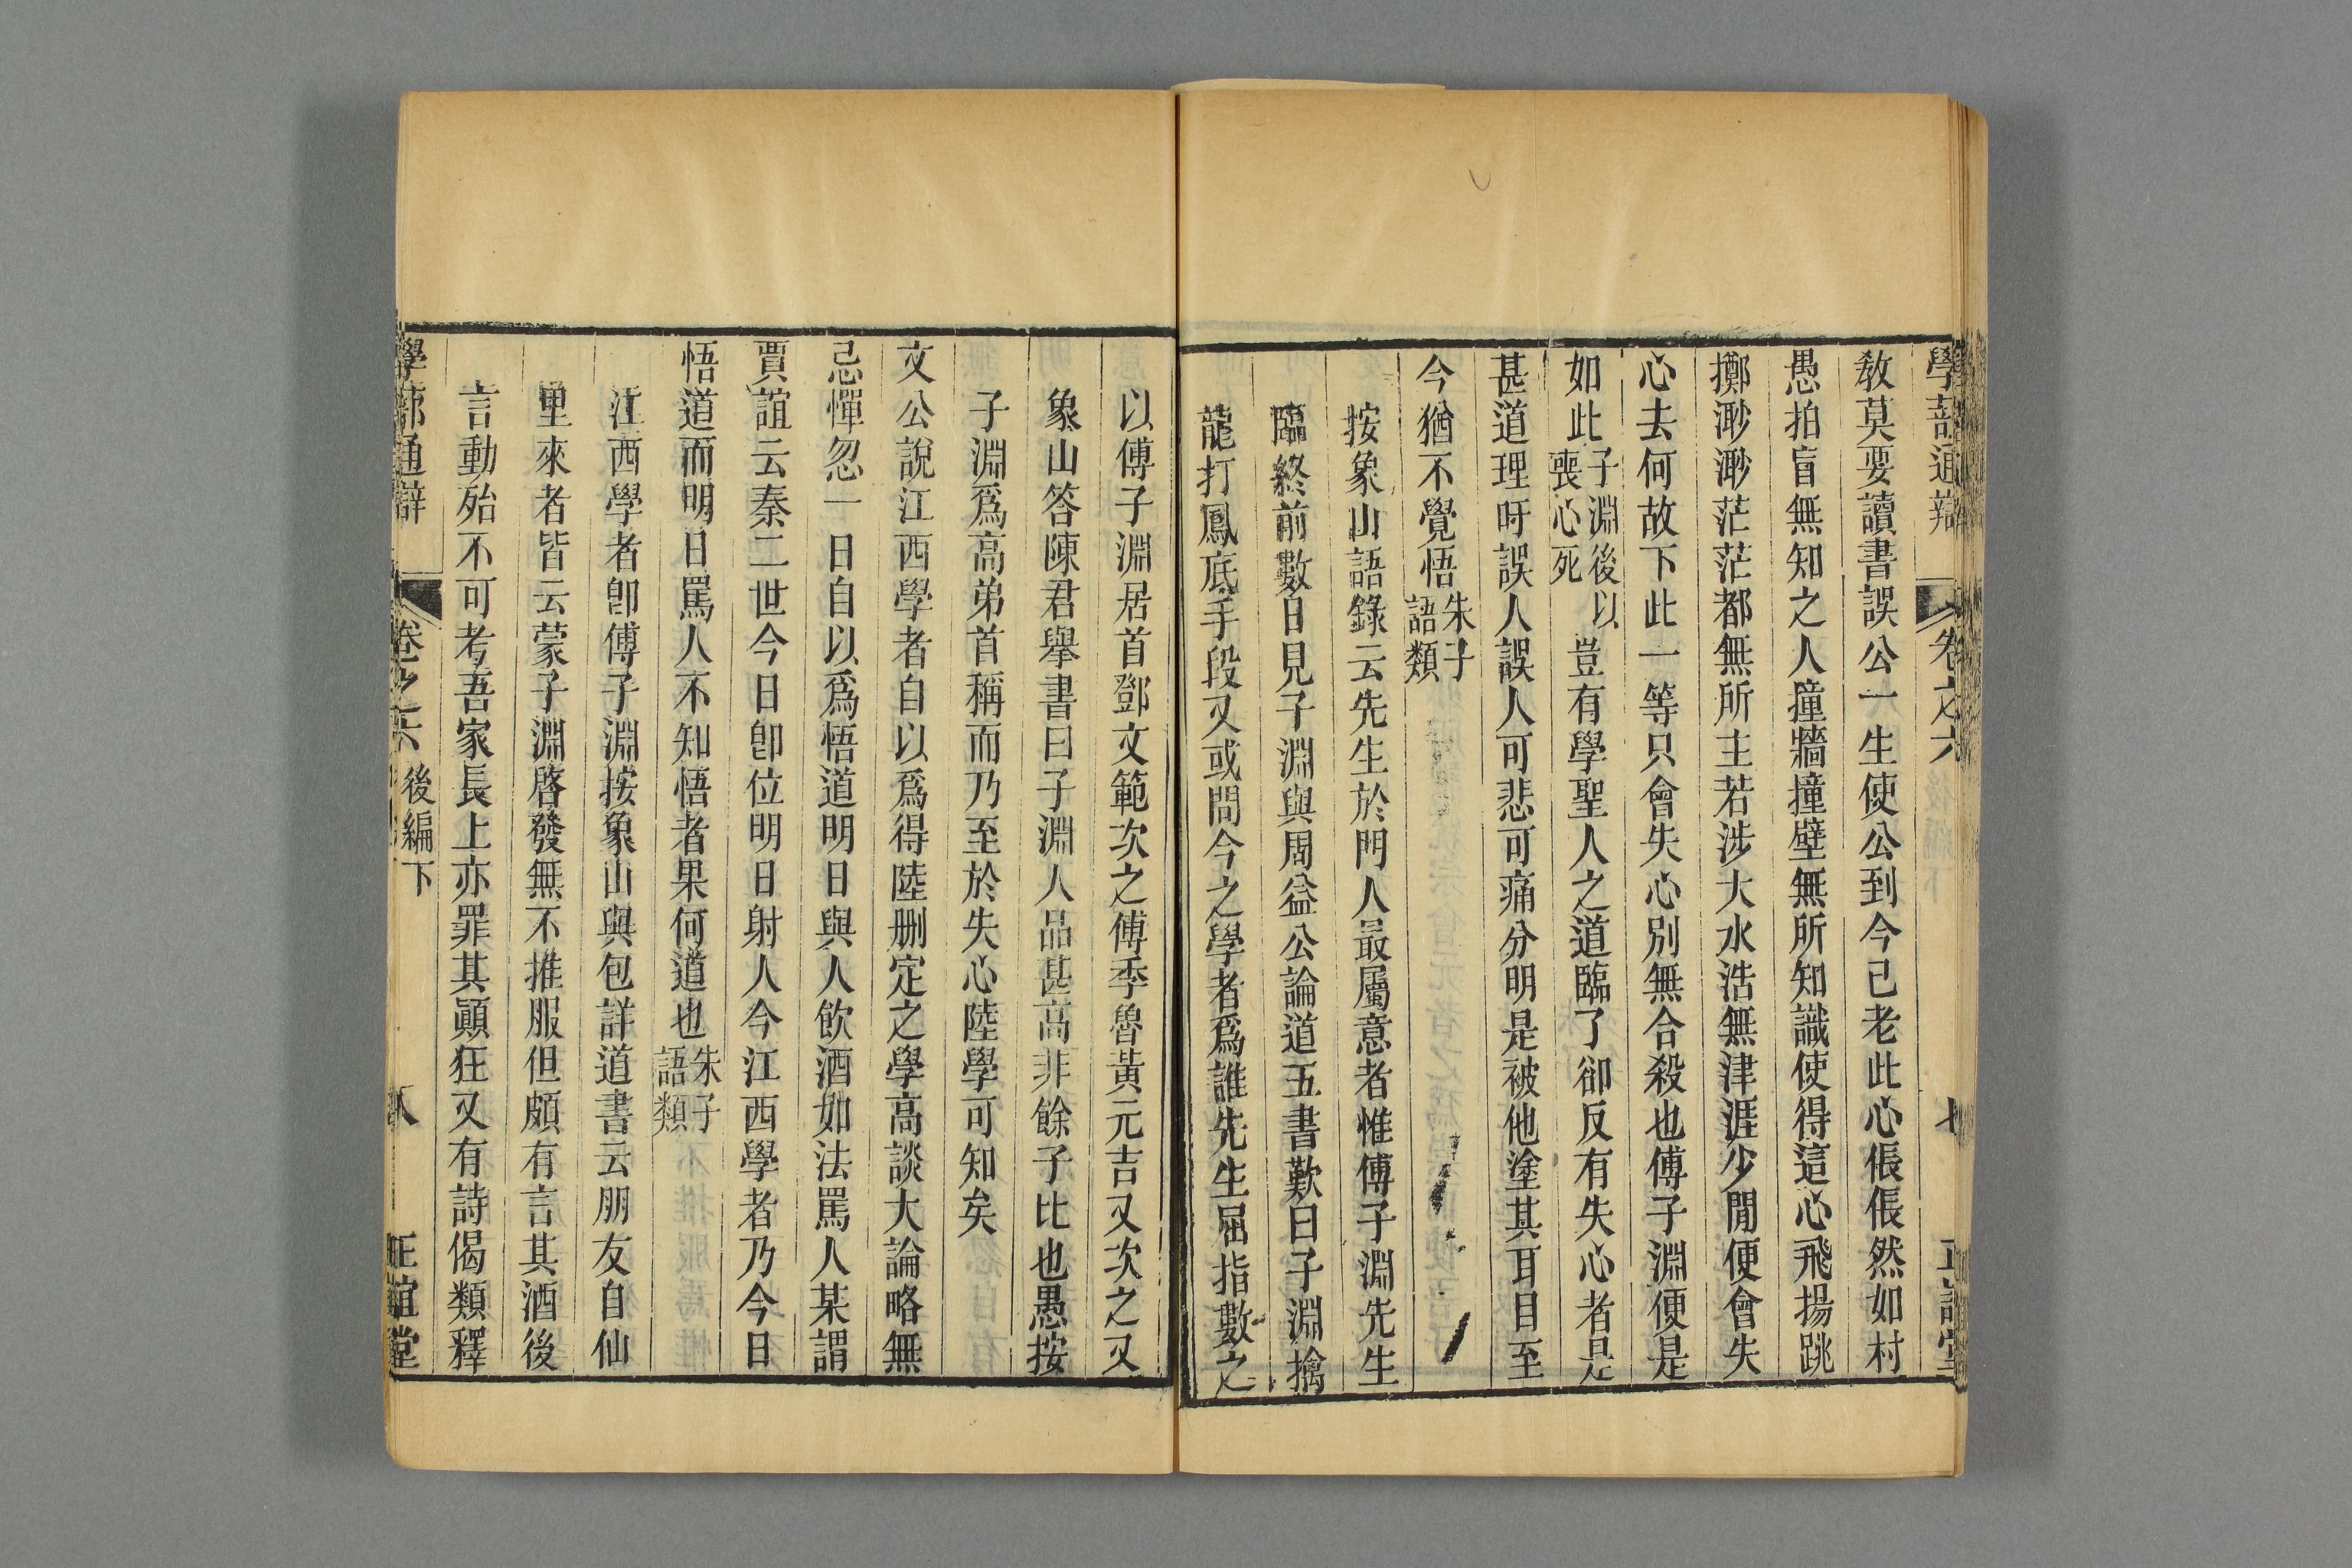 教莫要讀書誤公一生使公到今已老此心倀倀然如村
愚拍盲無知之人撞牆撞壁無所知識使得這心飛揚跳
擲渺渺茫茫都無所主若涉大水浩無津涯少閒便會失
心去何故下此一等只會失心別無合殺也傅子淵便是
如此子淵後以喪心死豈有學聖人之道臨了卻反有失心者是
甚道理吁誤人誤人可悲可痛分明是被他塗其耳目至
今猶不覺悟朱子語類
按象山語錄云先生於門人最屬意者惟傅子淵先生
臨終前數日見子淵與周益公論道五書歎曰子淵擒
龍打鳳底手段又或問今之學者爲誰先生屈指數之
學蔀通辯 卷之六 七 正誼堂
以傅子淵居首鄧文範次之傅季魯黃元吉又次之又
象山答陳君舉書曰子淵人品甚高非餘子比也愚按
子淵爲高弟首稱而乃至於失心陸學可知矣
文公說江西學者自以爲得陸刪定之學高談大論略無
忌憚忽一日自以爲悟道明日與人飲酒如法罵人某謂
賈誼云秦二世今日卽位明日射人今江西學者乃今日
悟道而明日罵人不知悟者果何道也朱子語類
江西學者卽傅子淵按象山與包詳道書云朋友自仙
里來者皆云蒙子淵啓發無不推服但頗有言其酒後
言動殆不可考吾家長上亦罪其顚狂又有詩偈類釋
學蔀通辯 卷之六 後編下 八 正誼堂